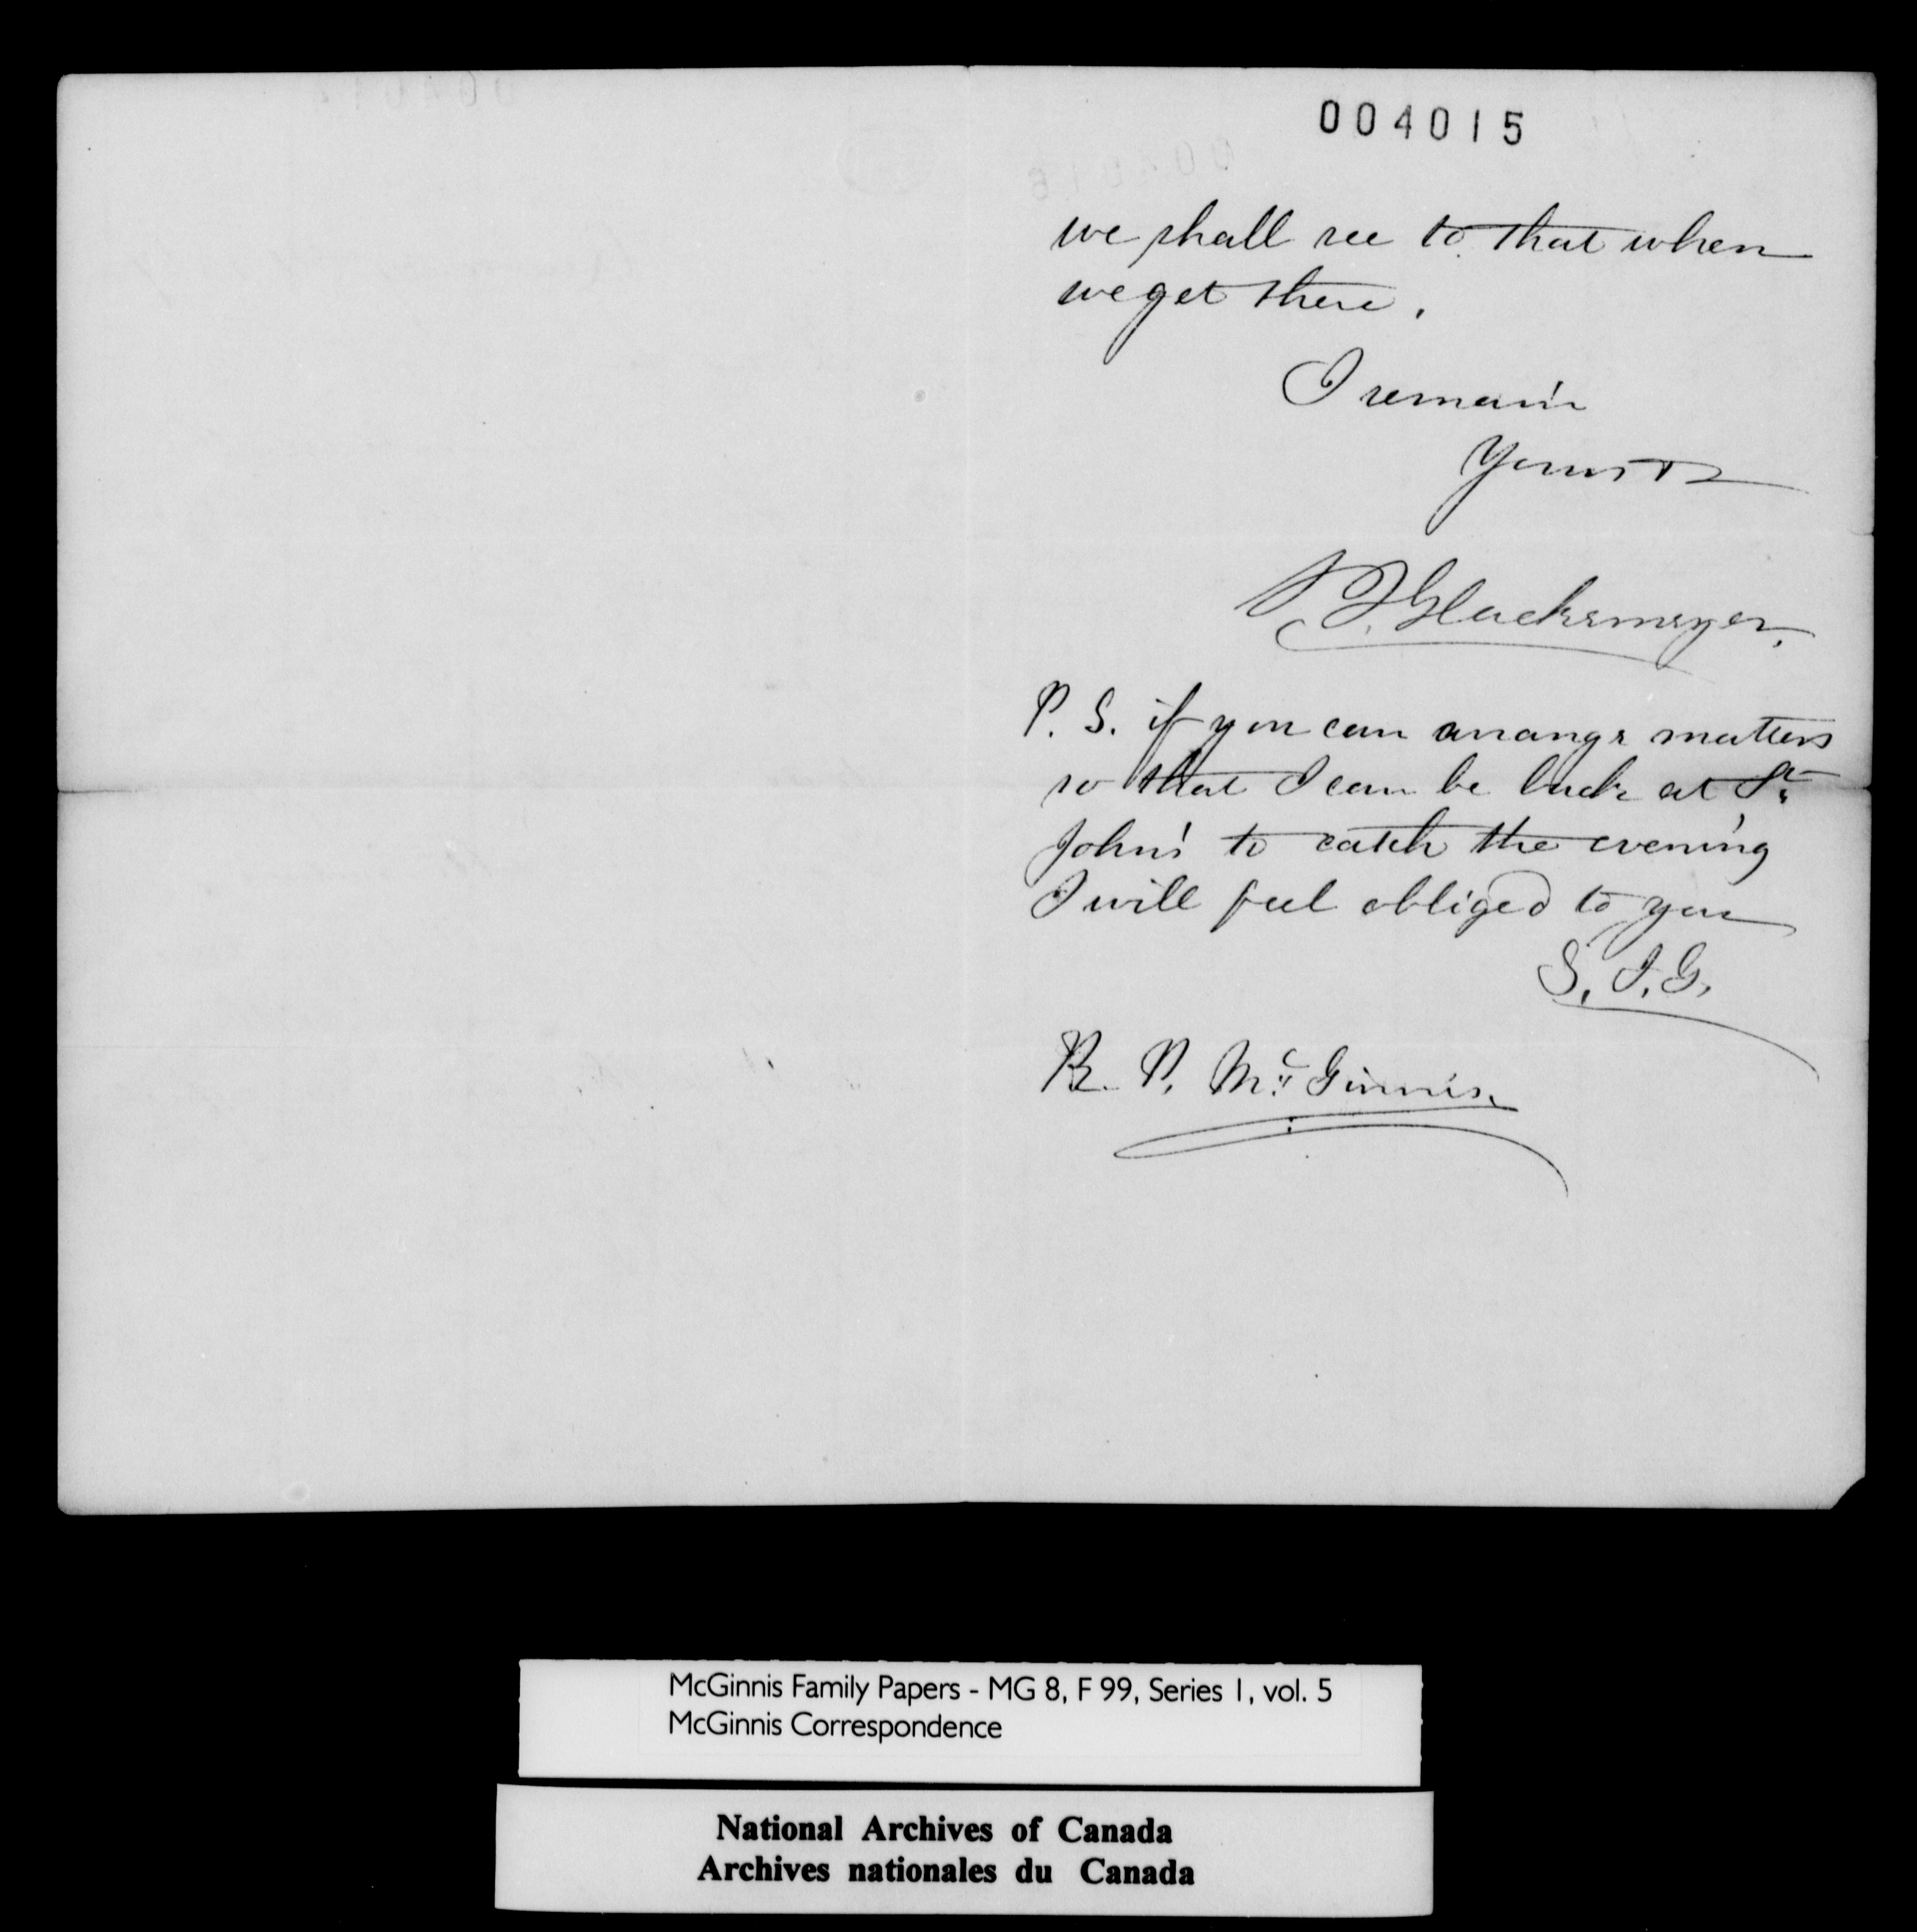 004015
we shall see to that when
we get there.
I remain
Yours
S. J. Glackemeyer.
P. S. if you can arrange matters
so that I can be back at St.
John's to catch the evening
I will feel obliged to you
S. J. G.
R. P. McGinnis.
McGinnis Family Papers - MG 8, F 99, Series 1, vol. 5
McGinnis Correspondence
National Archives of Canada
Archives nationales du Canada